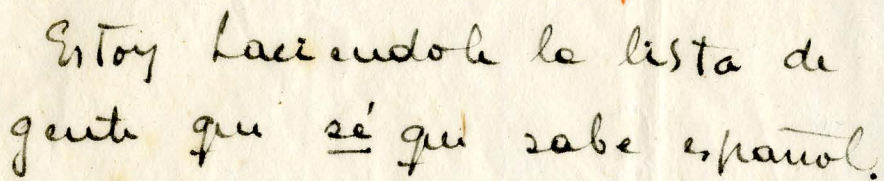 Estoy haciendole la lista de
gente que sé que sabe español.